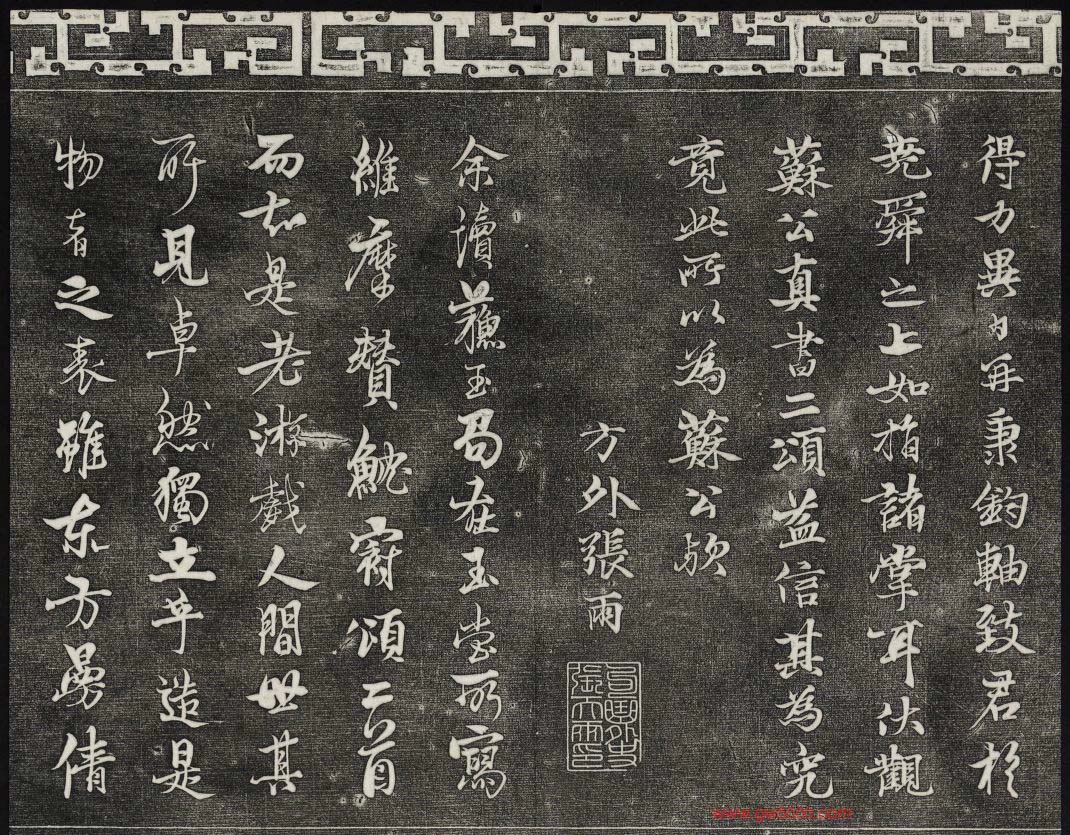 得力異日再秉鈞軸致君於
堯舜之上如指諸掌耳伏觀
蘇公真書二頌益信其為究
竟此所以為蘇公歟
方外張雨
句曲外史張天雨印
余讀蘇玉局在玉堂所寫
維摩贊魫冠頌二首
而知是老游戲人間世其
所見卓然獨立乎造是
物者之表雖東方曼倩